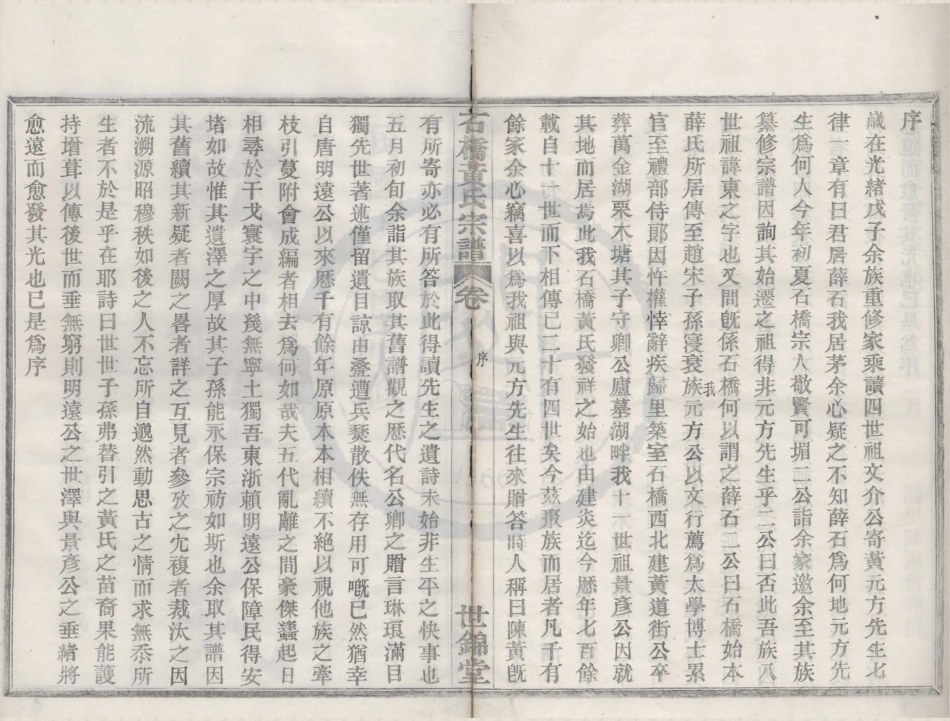 序
歲在光緒戊子余族重修家乘讀四世祖文介公寄黃元方先生七
律一章有曰君居薛石我居茅余心疑之不知薛石為何地元方先
生為何人今年初夏石橋宗人敬賢可堳二公詣余家邀余至其族
纂修宗譜因詢其始遷之祖得非元方先生乎二公曰否此吾族八
世祖諱東之字也又問旣係石橋何以謂之薛石二公曰石橋始本
薛氏所居傳至趙宋子孫寖衰我族元方公以文行薦為太學博士累
官至禮部侍郎因忤權悻辭疾歸里築室石橋西北建黃道街公卒
葬萬金湖栗木塘其子守卿公廬墓湖畔我十一世祖景彥公因就
其地而居焉此我石橋黃氏發祥之始也由建炎迄今歷年七百餘
載自十一世而下相傳已二十有四世矣今茲聚族而居者凡千有
餘家余心竊喜以為我祖與元方先生往來贈答時人稱曰陳黃旣
石橋黃氏宗譜 卷 序 世錦堂
有所寄亦必有所答於此得讀先生之遺詩未始非生平之快事也
五月初旬余詣其族取其舊譜觀之歷代名公卿之贈言琳琅滿目
獨先世著述僅留遺目諒由叠遭兵燹散佚無存用可嘅已然猶幸
自唐明遠公以來歷千有餘年原原本本相續不絕以視他族之牽
枝引蔓附會成編者相去為何如哉夫五代亂離之間豪傑蠭起日
相尋於干戈寰宇之中幾無寧土獨吾東浙賴明遠公保障民得安
堵如故惟其遺澤之厚故其子孫能永保宗祊如斯也余取其譜因
其舊續其新疑者闕之畧者詳之互見者參攷之冗複者裁汰之因
流溯源昭穆秩如後之人不忘所自邈然動思古之情而求無忝所
生者不於是乎在耶詩曰世世子孫弗替引之黃氏之苗裔果能護
持增葺以傳後世而垂無窮則明遠公之世澤與景彥公之垂緒將
愈遠而愈發其光也已是為序